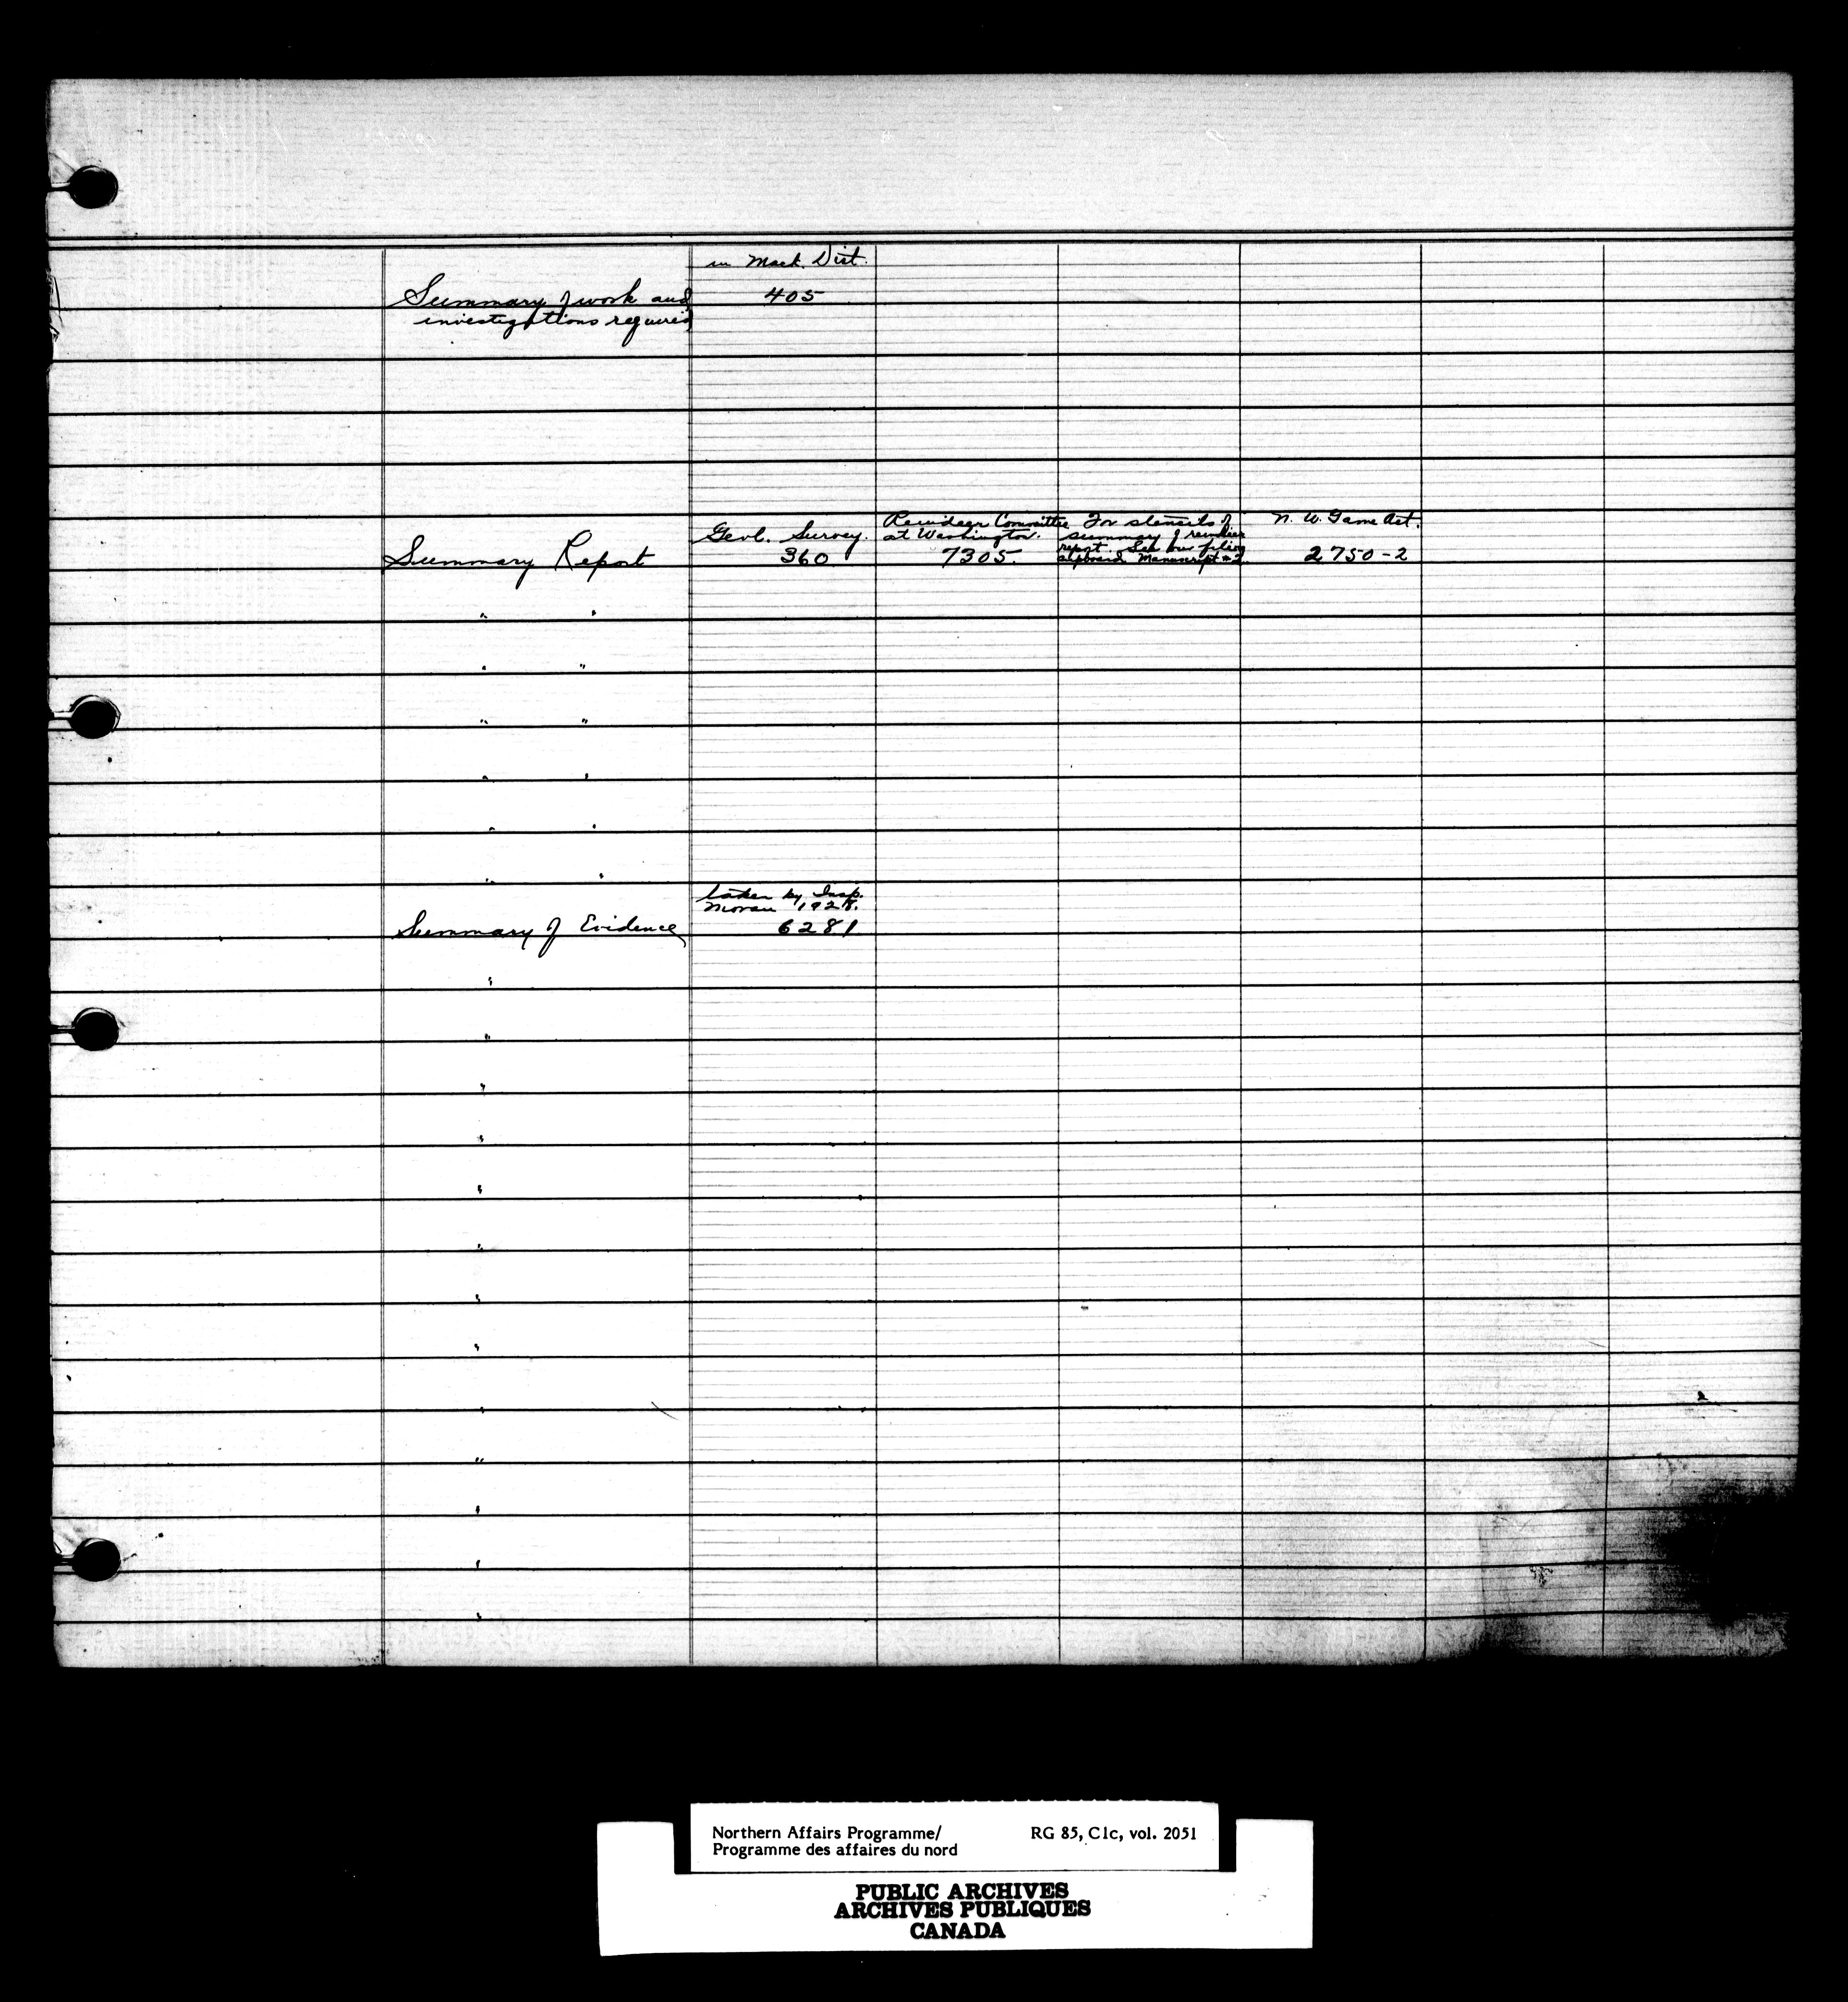 in Mack. Dist.
Summary of work and 405
investigations required
Geol. Survey. Reindeer Committee For stencils of N. W. Game Act.
at Washington. summary of reindeer
report. See our filing
Summary Report 360 7305. cupboard Manuscript #2. 2750-2
" "
" "
" "
" "
" "
" "
taken by Insp.
Moran 1928.
Summary of Evidence 6281
"
"
"
"
"
"
"
"
"
"
"
"
"
Northern Affairs Programme/ RG 85, C1c, vol. 2051
Programme des affaires du nord
PUBLIC ARCHIVES
ARCHIVES PUBLIQUES
CANADA